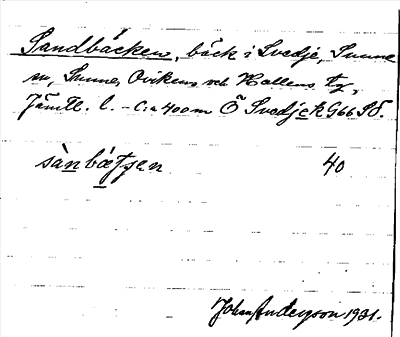 Sandbäcken, bäck i Svedje, Sunne
sn, Sunne, Ovikens och Hallens tg,
Jämtl. l. – C:a 400 m Ö Svedje k G66SÖ.
sànbætʃen 40
John Anderson 1931.